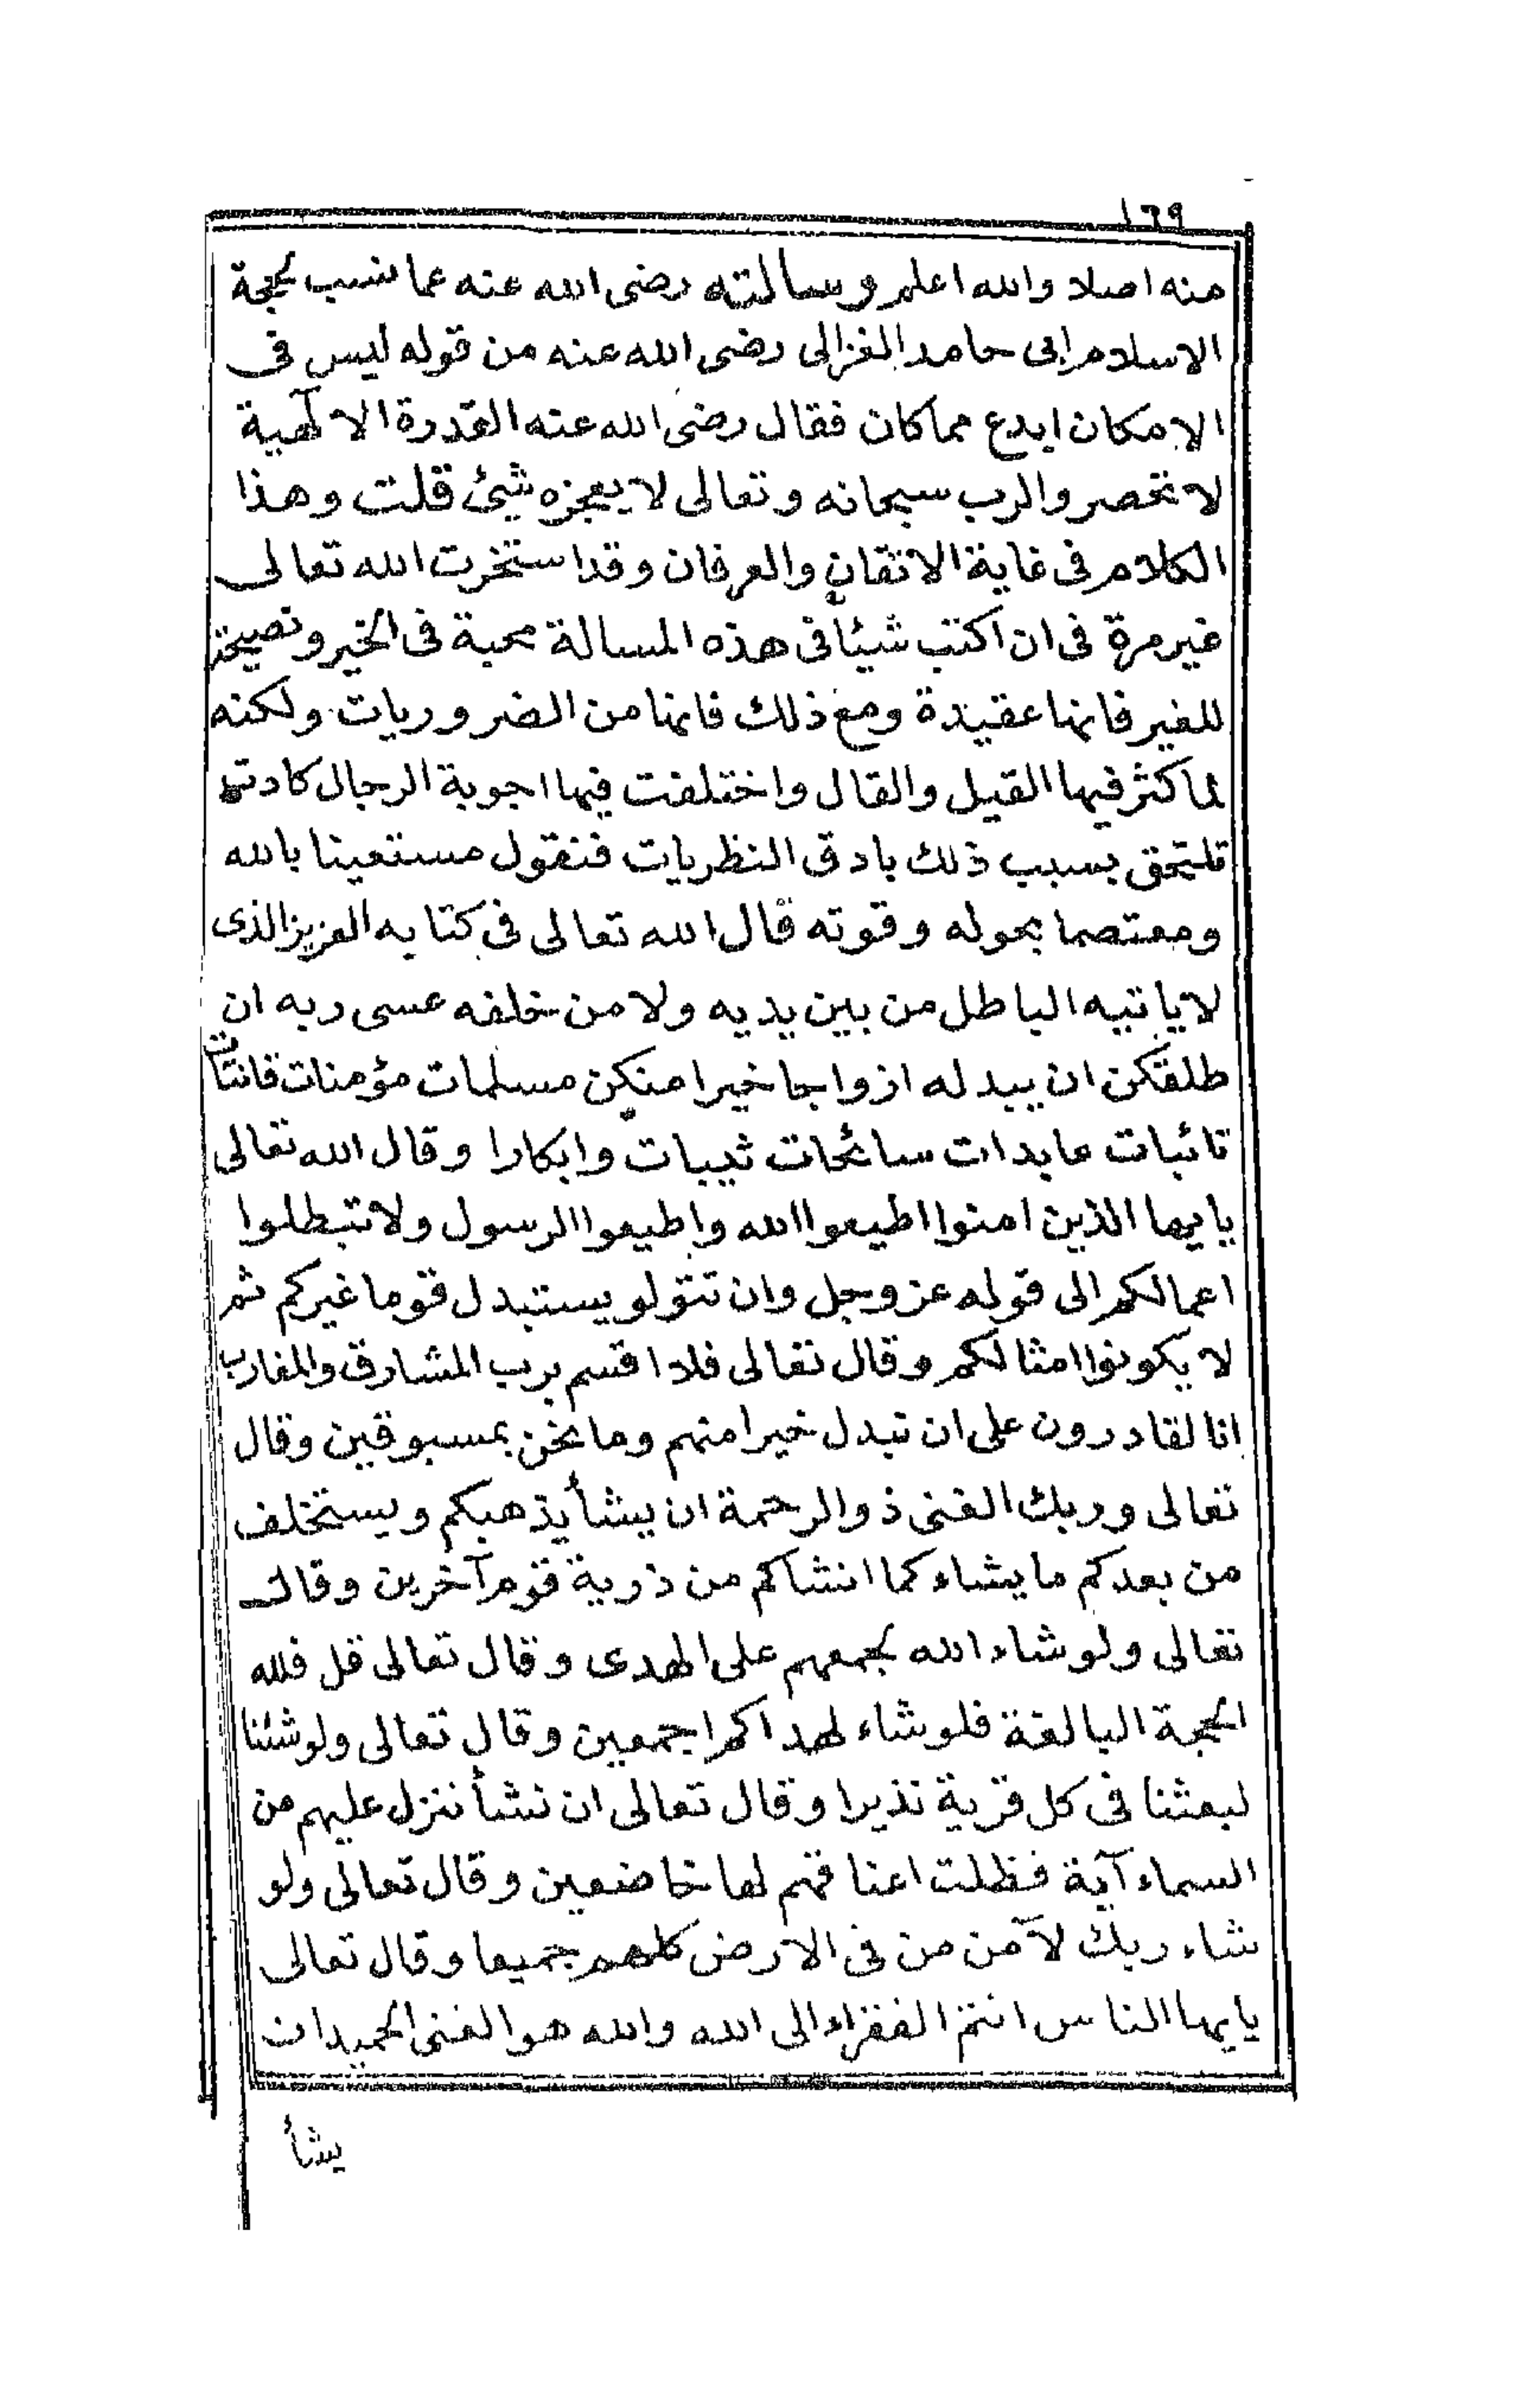 ١٦٩
منه اصلا والله اعلم وسالته رضى الله عنه عما نسب لحجة
الاسلام ابى حامد الغزالى رضى الله عنه من قوله ليس فى
الامكان ابدع مما كان فقال رضى الله عنه القدرة الالهية
لا تحصر والرب سبحانه وتعالى لا يعجزه شيئ قلت وهذا
الكلام فى غاية الاتقان والعرفان وقد استخرت الله تعالى
غير مرة فى ان اكتب شيئا فى هذه المسالة محبة فى الخير ونصيحة
للغير فانها عقيدة ومع ذلك فانها من الضروريات ولكنه
لما كثر فيها القيل والقال واختلفت فيها اجوبة الرجال كادت
تلتحق بسبب ذلك بادق النظريات فنقول مستعينا بالله
ومعتصما بحوله وقوته قال الله تعالى فى كتابه العزيز الذى
لا ياتيه الباطل من بين يديه ولا من خلفه عسى ربه ان
طلقكن ان يبدله ازواجا خيرا منكن مسلمات مؤمنات قانتات
تائبات عابدات سائحات ثيبات وابكارا وقال الله تعالى
يا يها الذين امنوا اطيعوا الله واطيعوا الرسول ولا تبطلوا
اعمالكم الى قوله عز وجل وان تتولو يستبدل قوما غيركم ثم
لا يكونوا امثالكم وقال تعالى فلا اقسم برب المشارق والمغارب
انا لقادرون على ان نبدل خيرا منهم وما نحن بمسبوقين وقال
تعالى وربك الغنى ذو الرحمة ان يشأ يذهبكم ويستخلف
من بعدكم ما يشاء كما انشاكم من ذرية قوم آخرين وقال
تعالى ولو شاء الله لجمعهم على الهدى وقال تعالى قل فلله
الحجة البالغة فلو شاء لهداكم اجمعين وقال تعالى ولو شئنا
لبعثنا فى كل قرية نذيرا وقال تعالى ان نشأ ننزل عليهم من
السماء آية فظلت اعناقهم لها خاضعين وقال تعالى ولو
شاء ربك لآمن من فى الارض كلهم جميعا وقال تعالى
يا يها الناس انتم الفقراء الى الله والله هو الغنى الحميد ان
يشأ